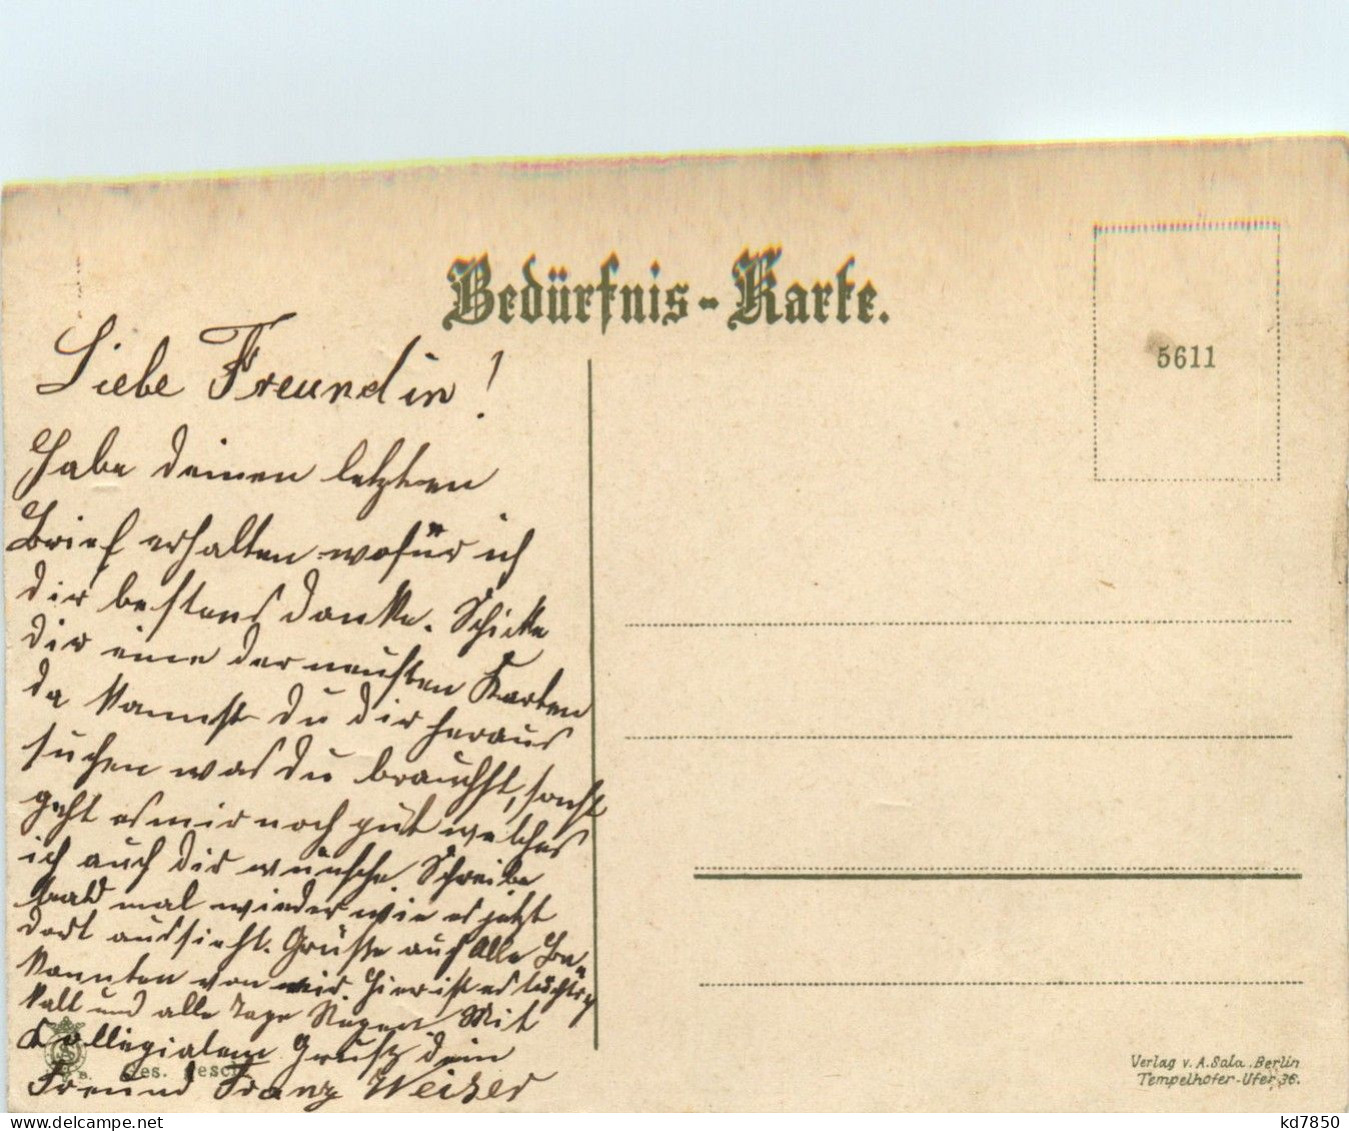 Bedürfnis-Karte.
5611
Liebe Freundin!
Habe deinen letzten
Brief erhalten wofür ich
dir bestens danke. Schicke
dir eine der neusten Karten
da kannst du dir heraus
suchen was du brauchst, sonst
geht es mir noch gut welches
ich auch dir wünsche. Schreibe
bald mal wieder wie es jetzt
dort aussieht. Grüße auch Alle Be-
kannten von mir. Hier ist es tüchtig
kalt und alle Tage Regen. Mit
Kollegialem Gruß dein
Freund Franz Weizer
Ges. gesch.
Verlag v. A. Sala. Berlin
Tempelhofer-Ufer, 36.
kd7850